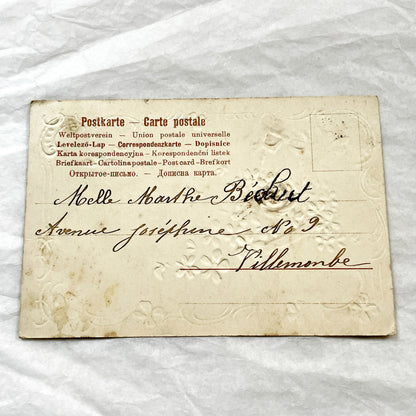 Postkarte – Carte postale
Weltpostverein – Union postale universelle
Levelező-Lap – Correspondenzkarte – Dopisnice
Karta korespondencyjna – Korespondenční listek
Briefkaart – Cartolina postale – Post card – Brefkort
Открытое-письмо. – Дописна карта.
Melle Marthe Béchut
Avenue Joséphine No 9
Villemonbe